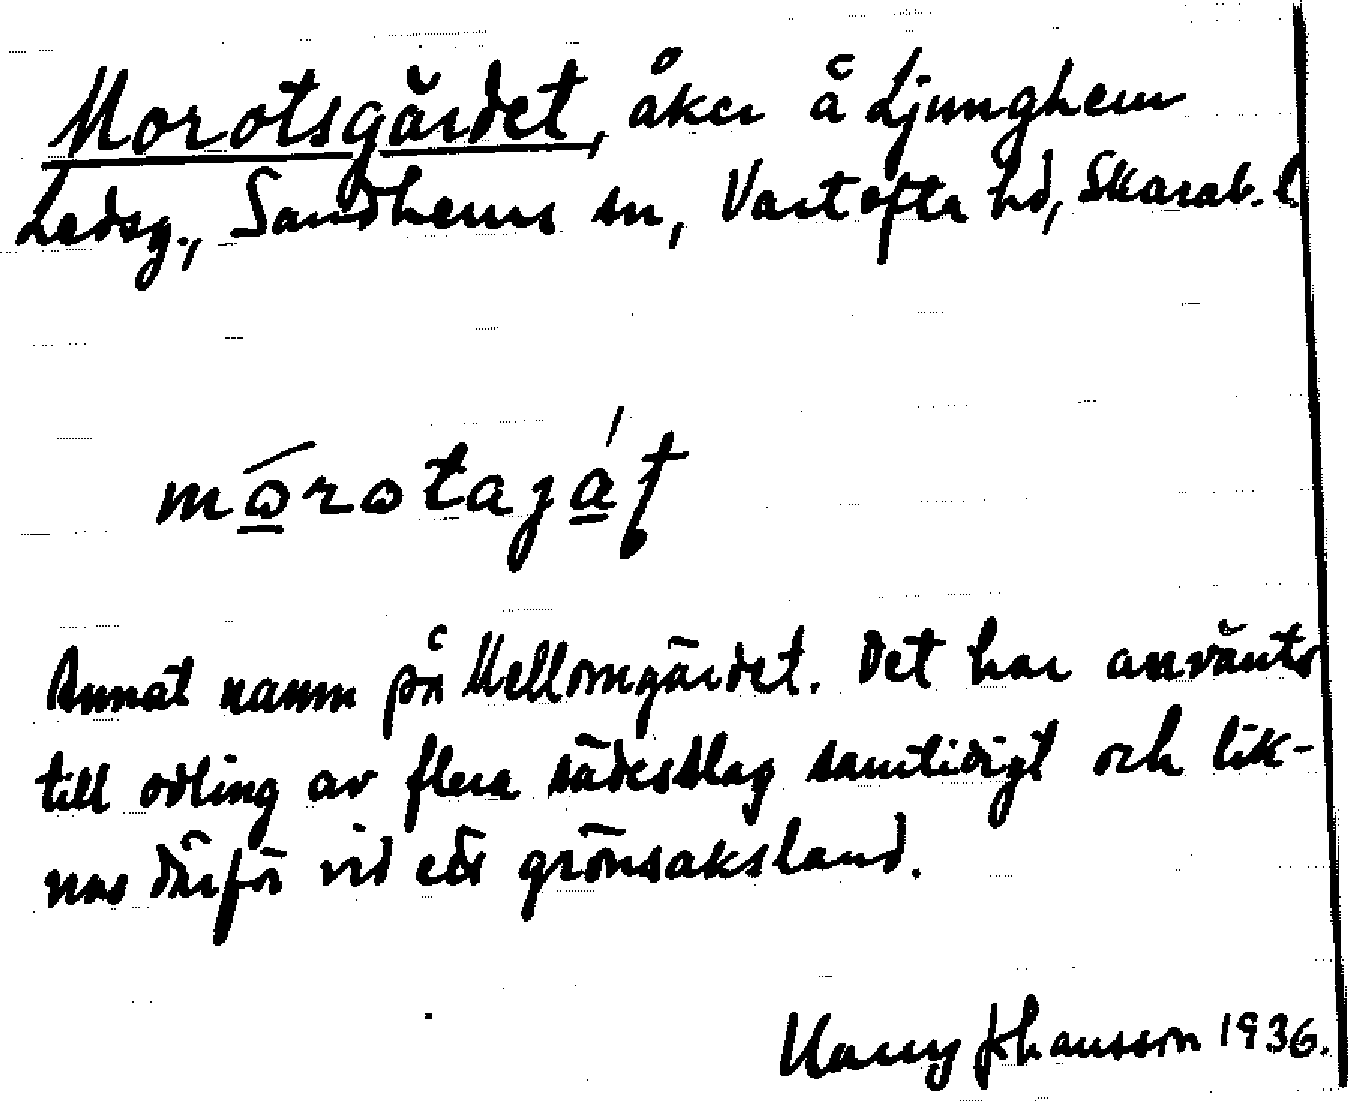 Morotsgärdet, åker å Ljunghem
Ledsg., Sandhems sn, Vartofta hd, Skarab. l.
Annat namn på Mellomgärdet. Det har använts
till odling av flera sädesslag samtidigt och lik-
nas därför vid ett grönsaksland.
Harry Johansson 1936.